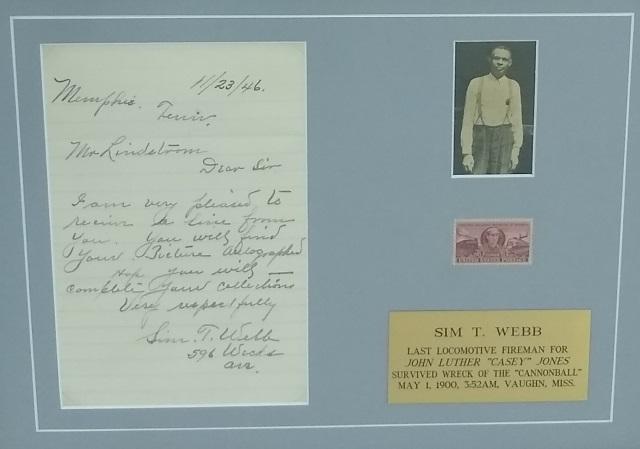 11/23/46.
Memphis.
Tenn.
Mr Lindstrom
Dear Sir
I am very pleased to
receive a line from
You. You will find
Your Picture Autographed
Hop you will
complete your collections
Very respectfully
Sim. T. Webb
596 Weeks
ave.
UNITED STATES POSTAGE
SIM T. WEBB
LAST LOCOMOTIVE FIREMAN FOR
JOHN LUTHER "CASEY" JONES
SURVIVED WRECK OF THE "CANNONBALL"
MAY 1, 1900, 3:52AM, VAUGHN, MISS.